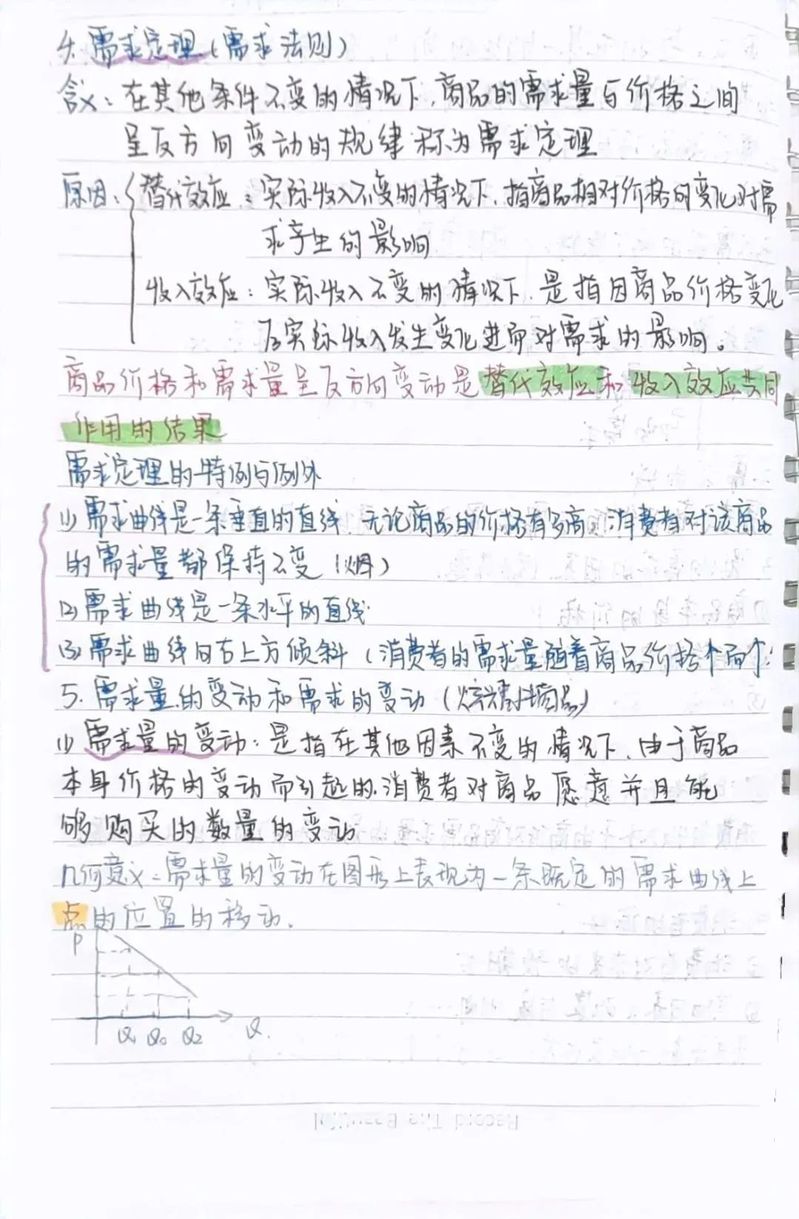 4. 需求定理（需求法则）
含义：在其他条件不变的情况下，商品的需求量与价格之间
呈反方向变动的规律称为需求定理
原因：替代效应：实际收入不变的情况下，指商品相对价格的变化对需
求产生的影响
收入效应：实际收入不变的情况下，是指因商品价格变化
及实际收入发生变化进而对需求的影响。
商品价格和需求量呈反方向变动是替代效应和收入效应共同
作用的结果
需求定理的特例与例外
(1) 需求曲线是一条垂直的直线，无论商品的价格有多高，消费者对该商品
的需求量都保持不变（烟）
(2) 需求曲线是一条水平的直线
(3) 需求曲线向右上方倾斜（消费者的需求量随着商品价格个而个）
5. 需求量的变动和需求的变动（炫耀
(1) 需求量的变动：是指在其他因素不变的情况下，由于商品
本身价格的变动而引起的，消费者对商品愿意并且能
够购买的数量的变动
几何意义：需求量的变动在图形上表现为一条既定的需求曲线上
点的位置的移动.
P
Q₁ Q₀ Q₂ Q.
Record The Beautiful